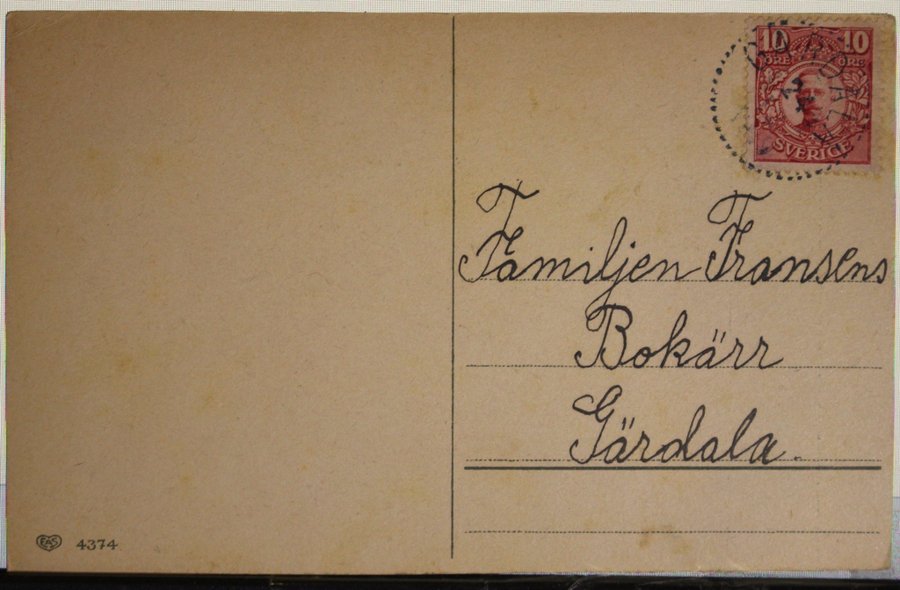 10 10
ÖRE ÖRE
SVERIGE
Familjen Fransens
Bokärr
Gärdala.
EAS 4374